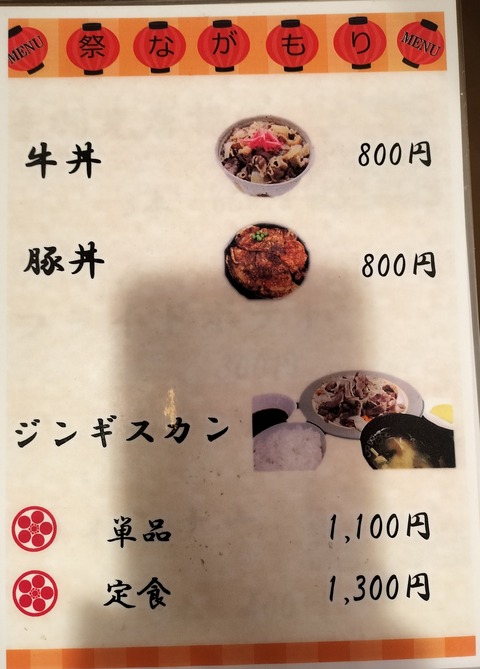 MENU 祭ながもり MENU
牛丼 800円
豚丼 800円
ジンギスカン
単品 1,100円
定食 1,300円